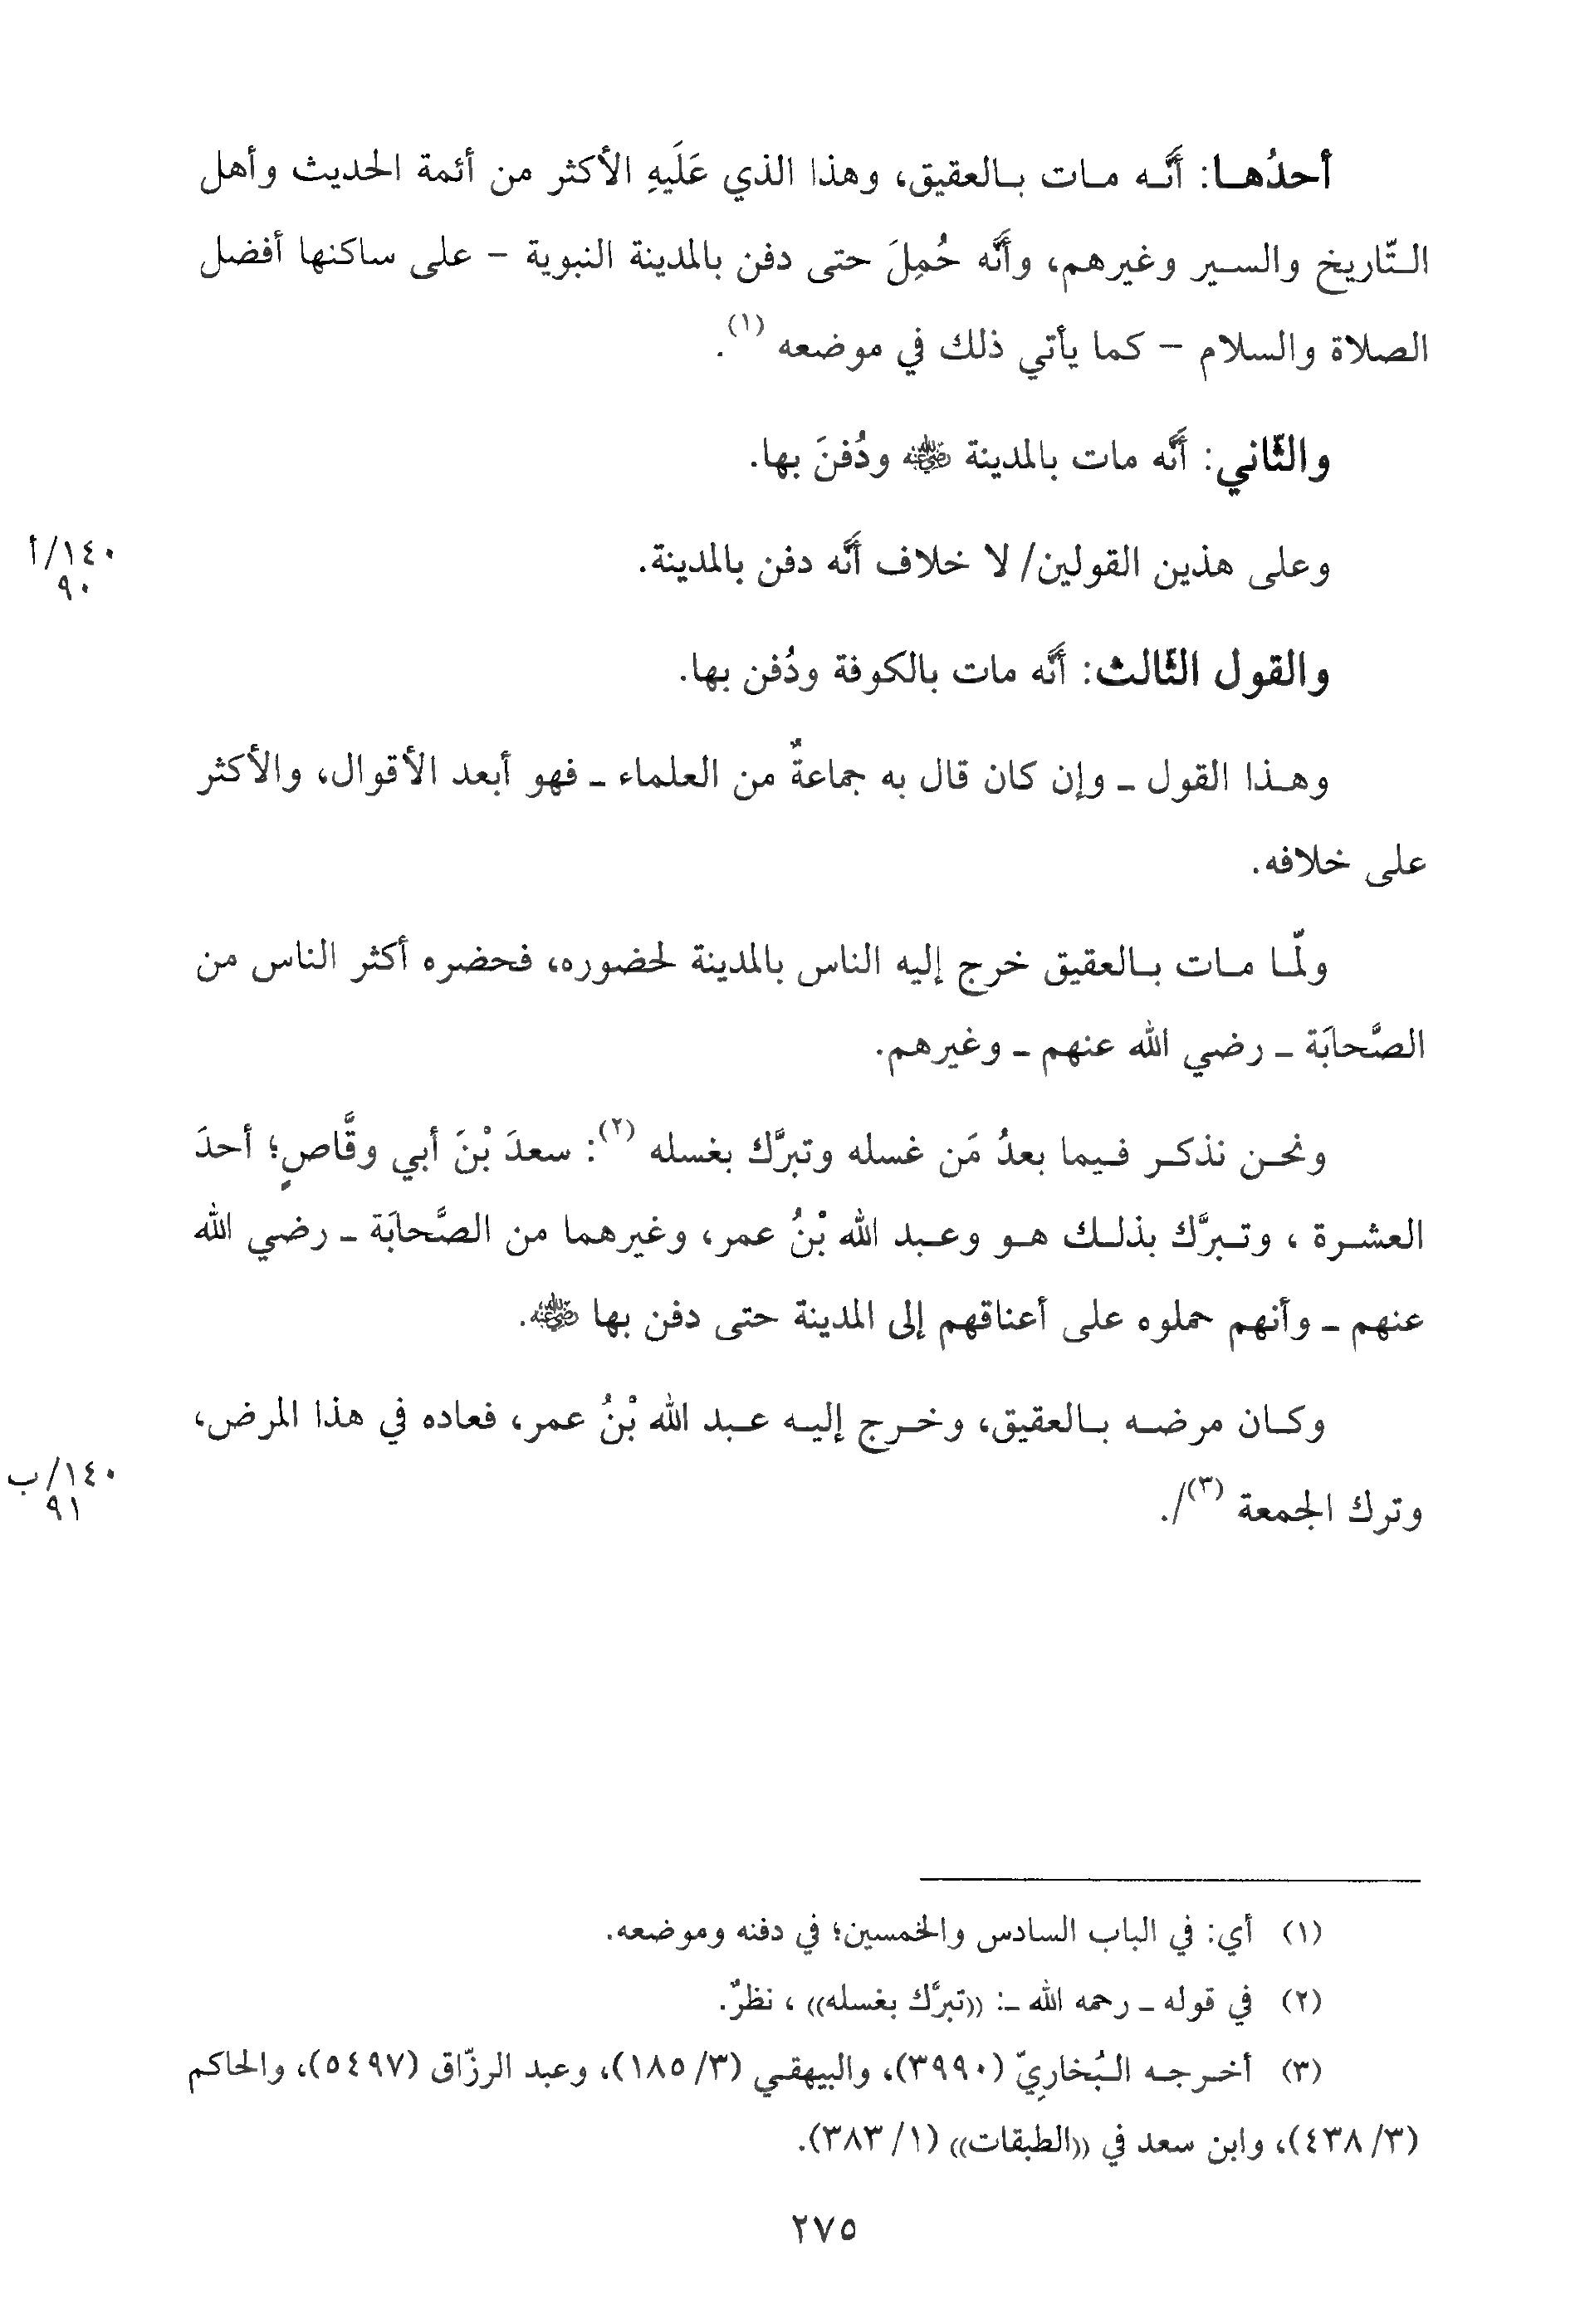 أحدُهـا: أنَّـه مـات بـالعقيق، وهذا الذي عَلَيهِ الأكثر من أئمة الحديث وأهل
الـتّاريخ والسـير وغيرهم، وأنَّه حُمِلَ حتى دفن بالمدينة النبوية – على ساكنها أفضل
الصلاة والسلام – كما يأتي ذلك في موضعه (١).
والثّاني: أنَّه مات بالمدينة رضي الله عنه ودُفنَ بها.
وعلى هذين القولين/ لا خلاف أنَّه دفن بالمدينة.
١٤٠/أ
٩٠
والقول الثّالث: أنَّه مات بالكوفة ودُفن بها.
وهـذا القول ـ وإن كان قال به جماعةٌ من العلماء ـ فهو أبعد الأقوال، والأكثر
على خلافه.
ولمّـا مـات بـالعقيق خرج إليه الناس بالمدينة لحضوره، فحضره أكثر الناس من
الصَّحابَة ـ رضي الله عنهم ـ وغيرهم.
ونحـن نذكـر فـيما بعدُ مَن غسله وتبرَّك بغسله (٢): سعدَ بْنَ أبي وقَّاصٍ؛ أحدَ
العشـرة ، وتـبرَّك بذلـك هـو وعـبد الله بْنُ عمر، وغيرهما من الصَّحابَة ـ رضي الله
عنهم ـ وأنهم حملوه على أعناقهم إلى المدينة حتى دفن بها رضي الله عنه.
وكـان مرضـه بـالعقيق، وخـرج إليـه عـبد الله بْنُ عمر، فعاده في هذا المرض،
وترك الجمعة (٣)/.
١٤٠/ب
٩١
(١) أي: في الباب السادس والخمسين؛ في دفنه وموضعه.
(٢) في قوله ـ رحمه الله ـ: ((تبرَّك بغسله)) ، نظرٌ.
(٣) أخـرجـه الـبُخارِيّ (٣٩٩٠)، والبيهقـي (٣/ ١٨٥)، وعبد الرزّاق (٥٤٩٧)، والحاكم
(٣/ ٤٣٨)، وابن سعد في ((الطبقات)) (١/ ٣٨٣).
٢٧٥